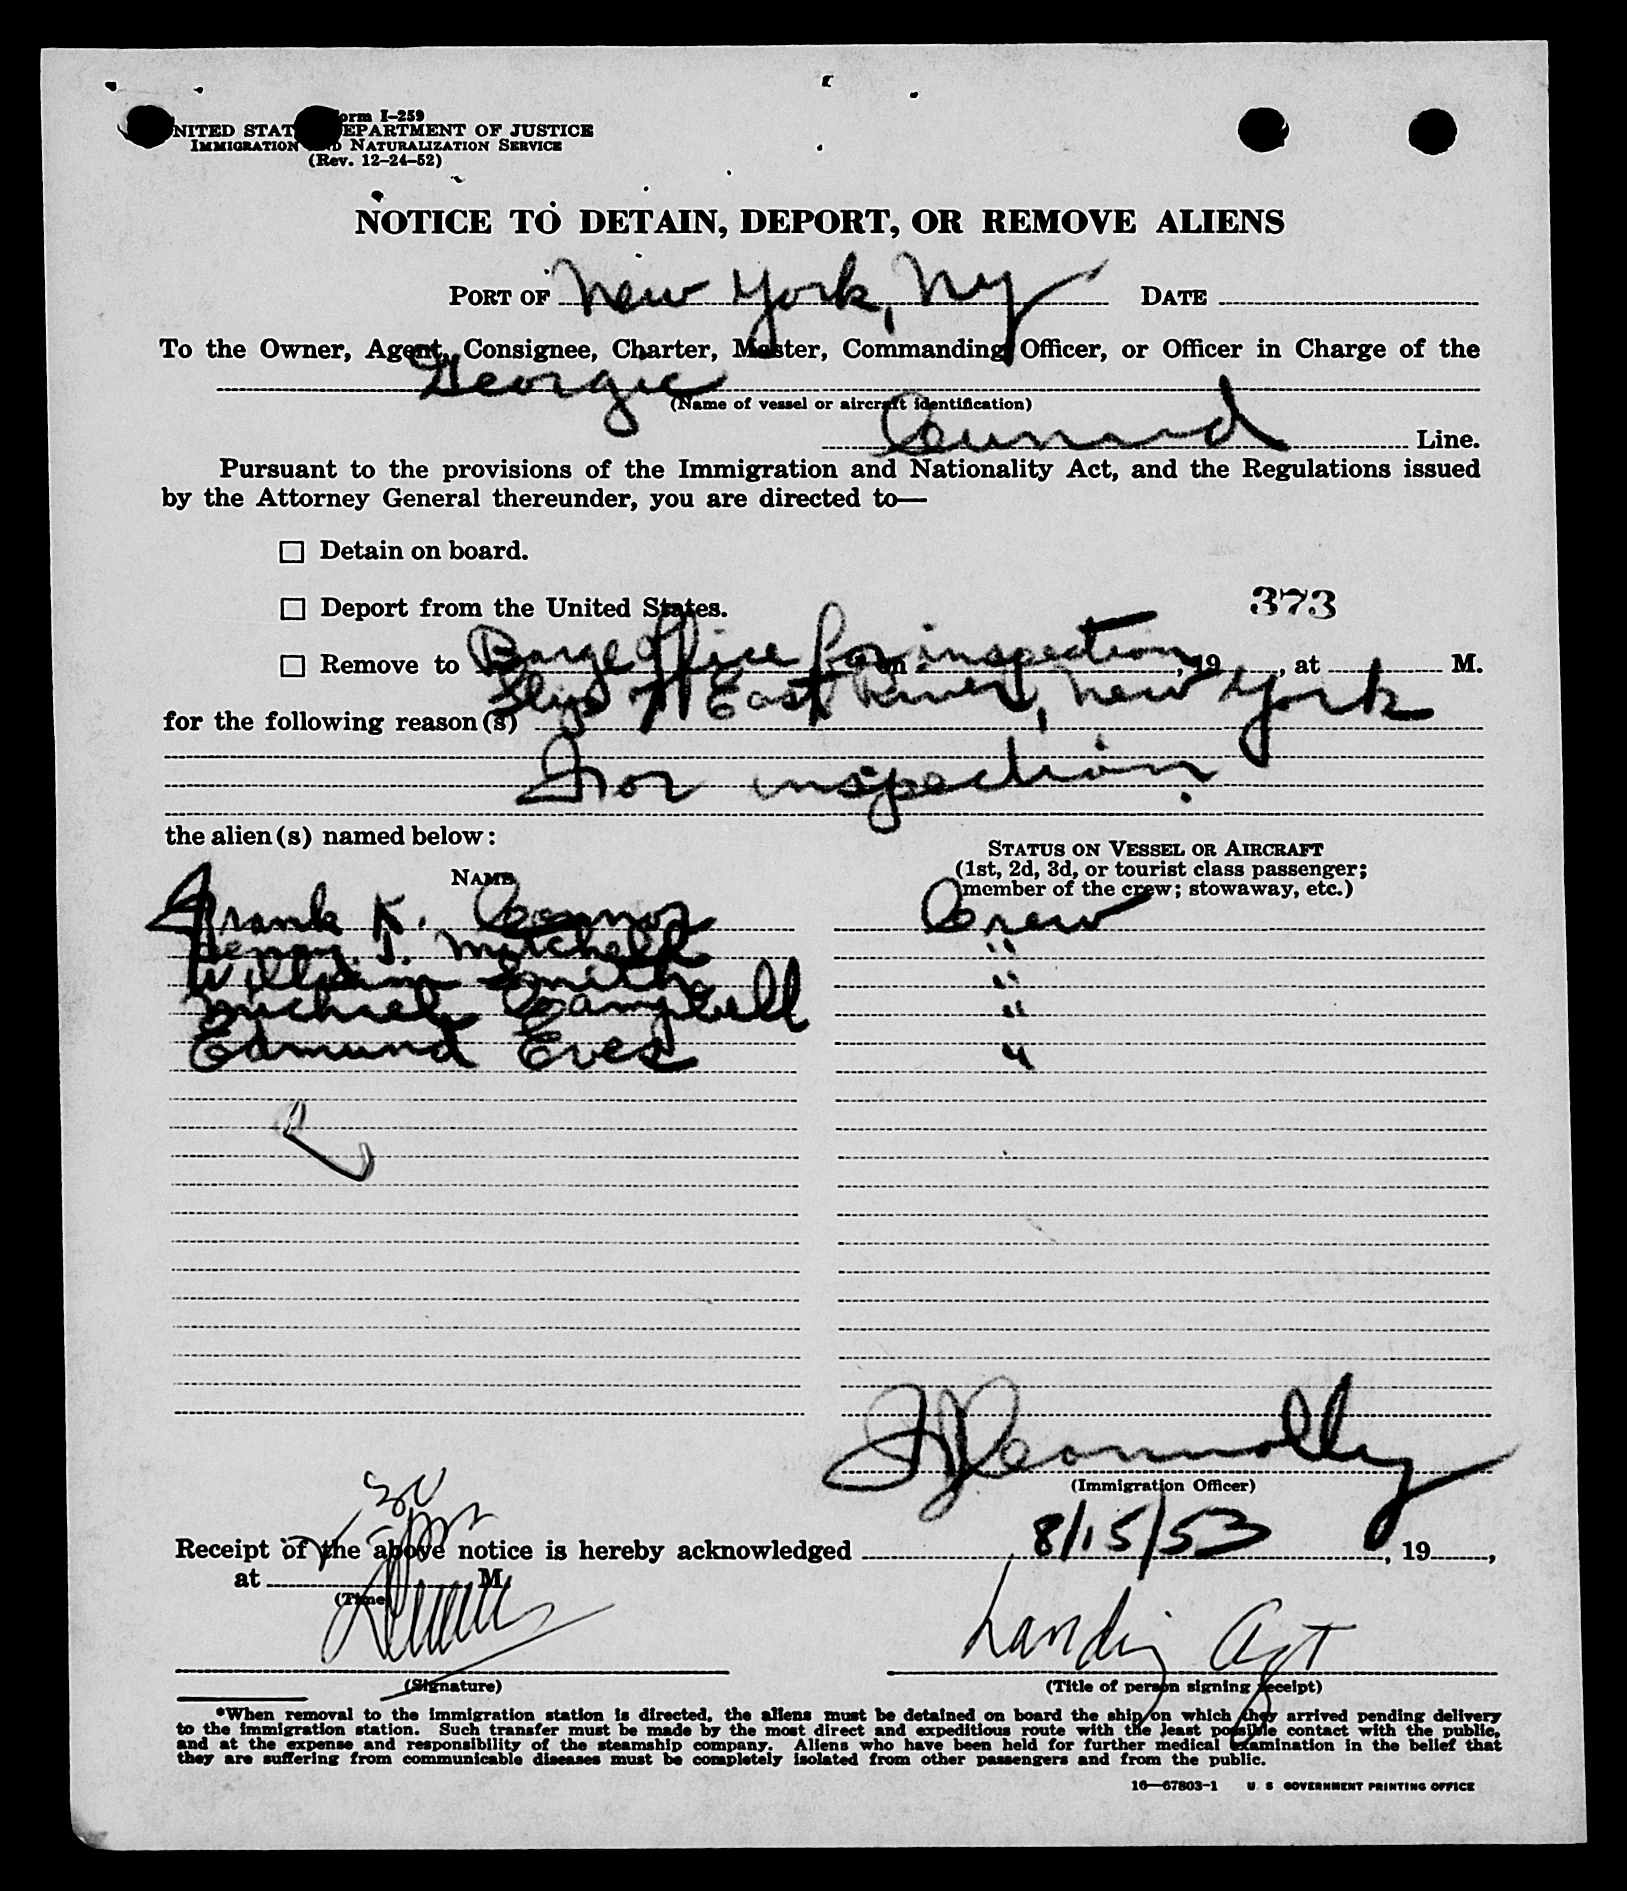 Form I-259
UNITED STATES DEPARTMENT OF JUSTICE
IMMIGRATION AND NATURALIZATION SERVICE
(Rev. 12-24-52)
NOTICE TO DETAIN, DEPORT, OR REMOVE ALIENS
PORT OF New York, NY DATE
To the Owner, Agent, Consignee, Charter, Master, Commanding Officer, or Officer in Charge of the
Georgic
(Name of vessel or aircraft identification)
Cunard Line.
Pursuant to the provisions of the Immigration and Nationality Act, and the Regulations issued
by the Attorney General thereunder, you are directed to—
☐ Detain on board.
☐ Deport from the United States.
373
☐ Remove to Barge Office for inspection, 19, at M.
Slip 7 East River, New York
for the following reason(s)
For inspection
the alien(s) named below:
NAME
STATUS ON VESSEL OR AIRCRAFT
(1st, 2d, 3d, or tourist class passenger;
member of the crew; stowaway, etc.)
Frank K. Connor Crew
Henry J. Mitchell "
William Smith "
Michael Campbell "
Edmund Eves "
F J Connolly
(Immigration Officer)
Receipt of the above notice is hereby acknowledged 8/15/53, 19,
at M.
(Time)
Landing Agt
(Signature) (Title of person signing receipt)
*When removal to the immigration station is directed, the aliens must be detained on board the ship on which they arrived pending delivery
to the immigration station. Such transfer must be made by the most direct and expeditious route with the least possible contact with the public,
and at the expense and responsibility of the steamship company. Aliens who have been held for further medical examination in the belief that
they are suffering from communicable diseases must be completely isolated from other passengers and from the public.
16—67803-1 U. S. GOVERNMENT PRINTING OFFICE